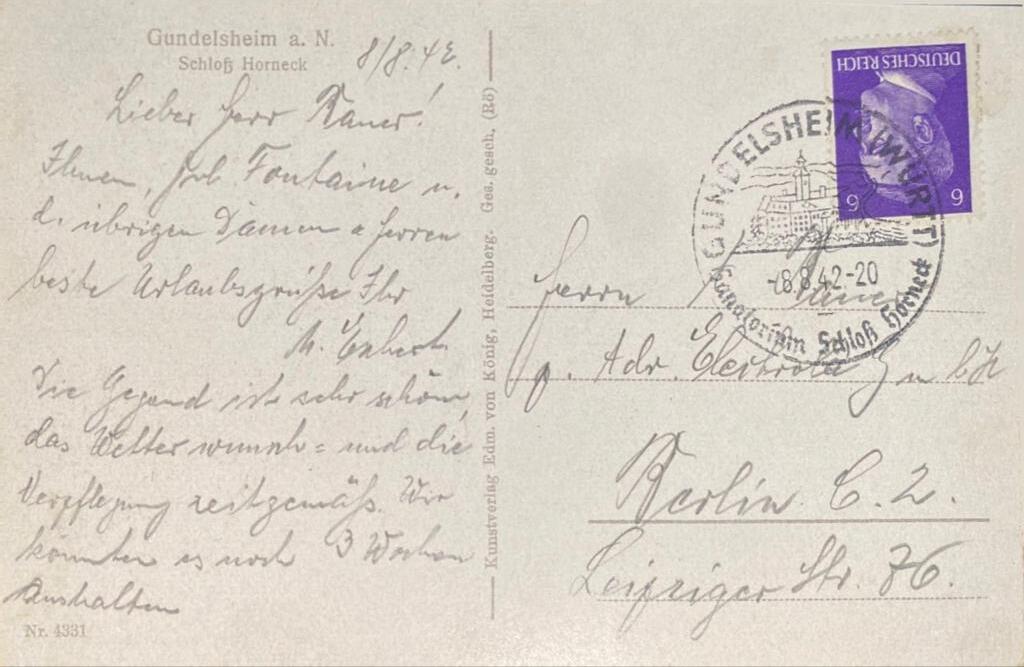 Gundelsheim a. N.
Schloß Horneck
8/8.42.
Lieber Herr
Ihnen, Frl. Fontaine u.
d. übrigen Damen u Herren
beste Urlaubsgrüße Ihr
M.
Die Gegend ist sehr schön,
das Wetter wunsch= und die
Verpflegung zeitgemäß. Wir
könnten es noch 3 Wochen
aushalten
Nr. 4331
Kunstverlag Edm. von König, Heidelberg. Ges. gesch. (Rö)
DEUTSCHES REICH
6 6
GUNDELSHEIM (WÜRTT)
-8.8.42-20
Sanatorium Schloß Horneck
Herrn
p. Adr. Electrola GmbH
Berlin C. 2.
Leipziger Str. 76.